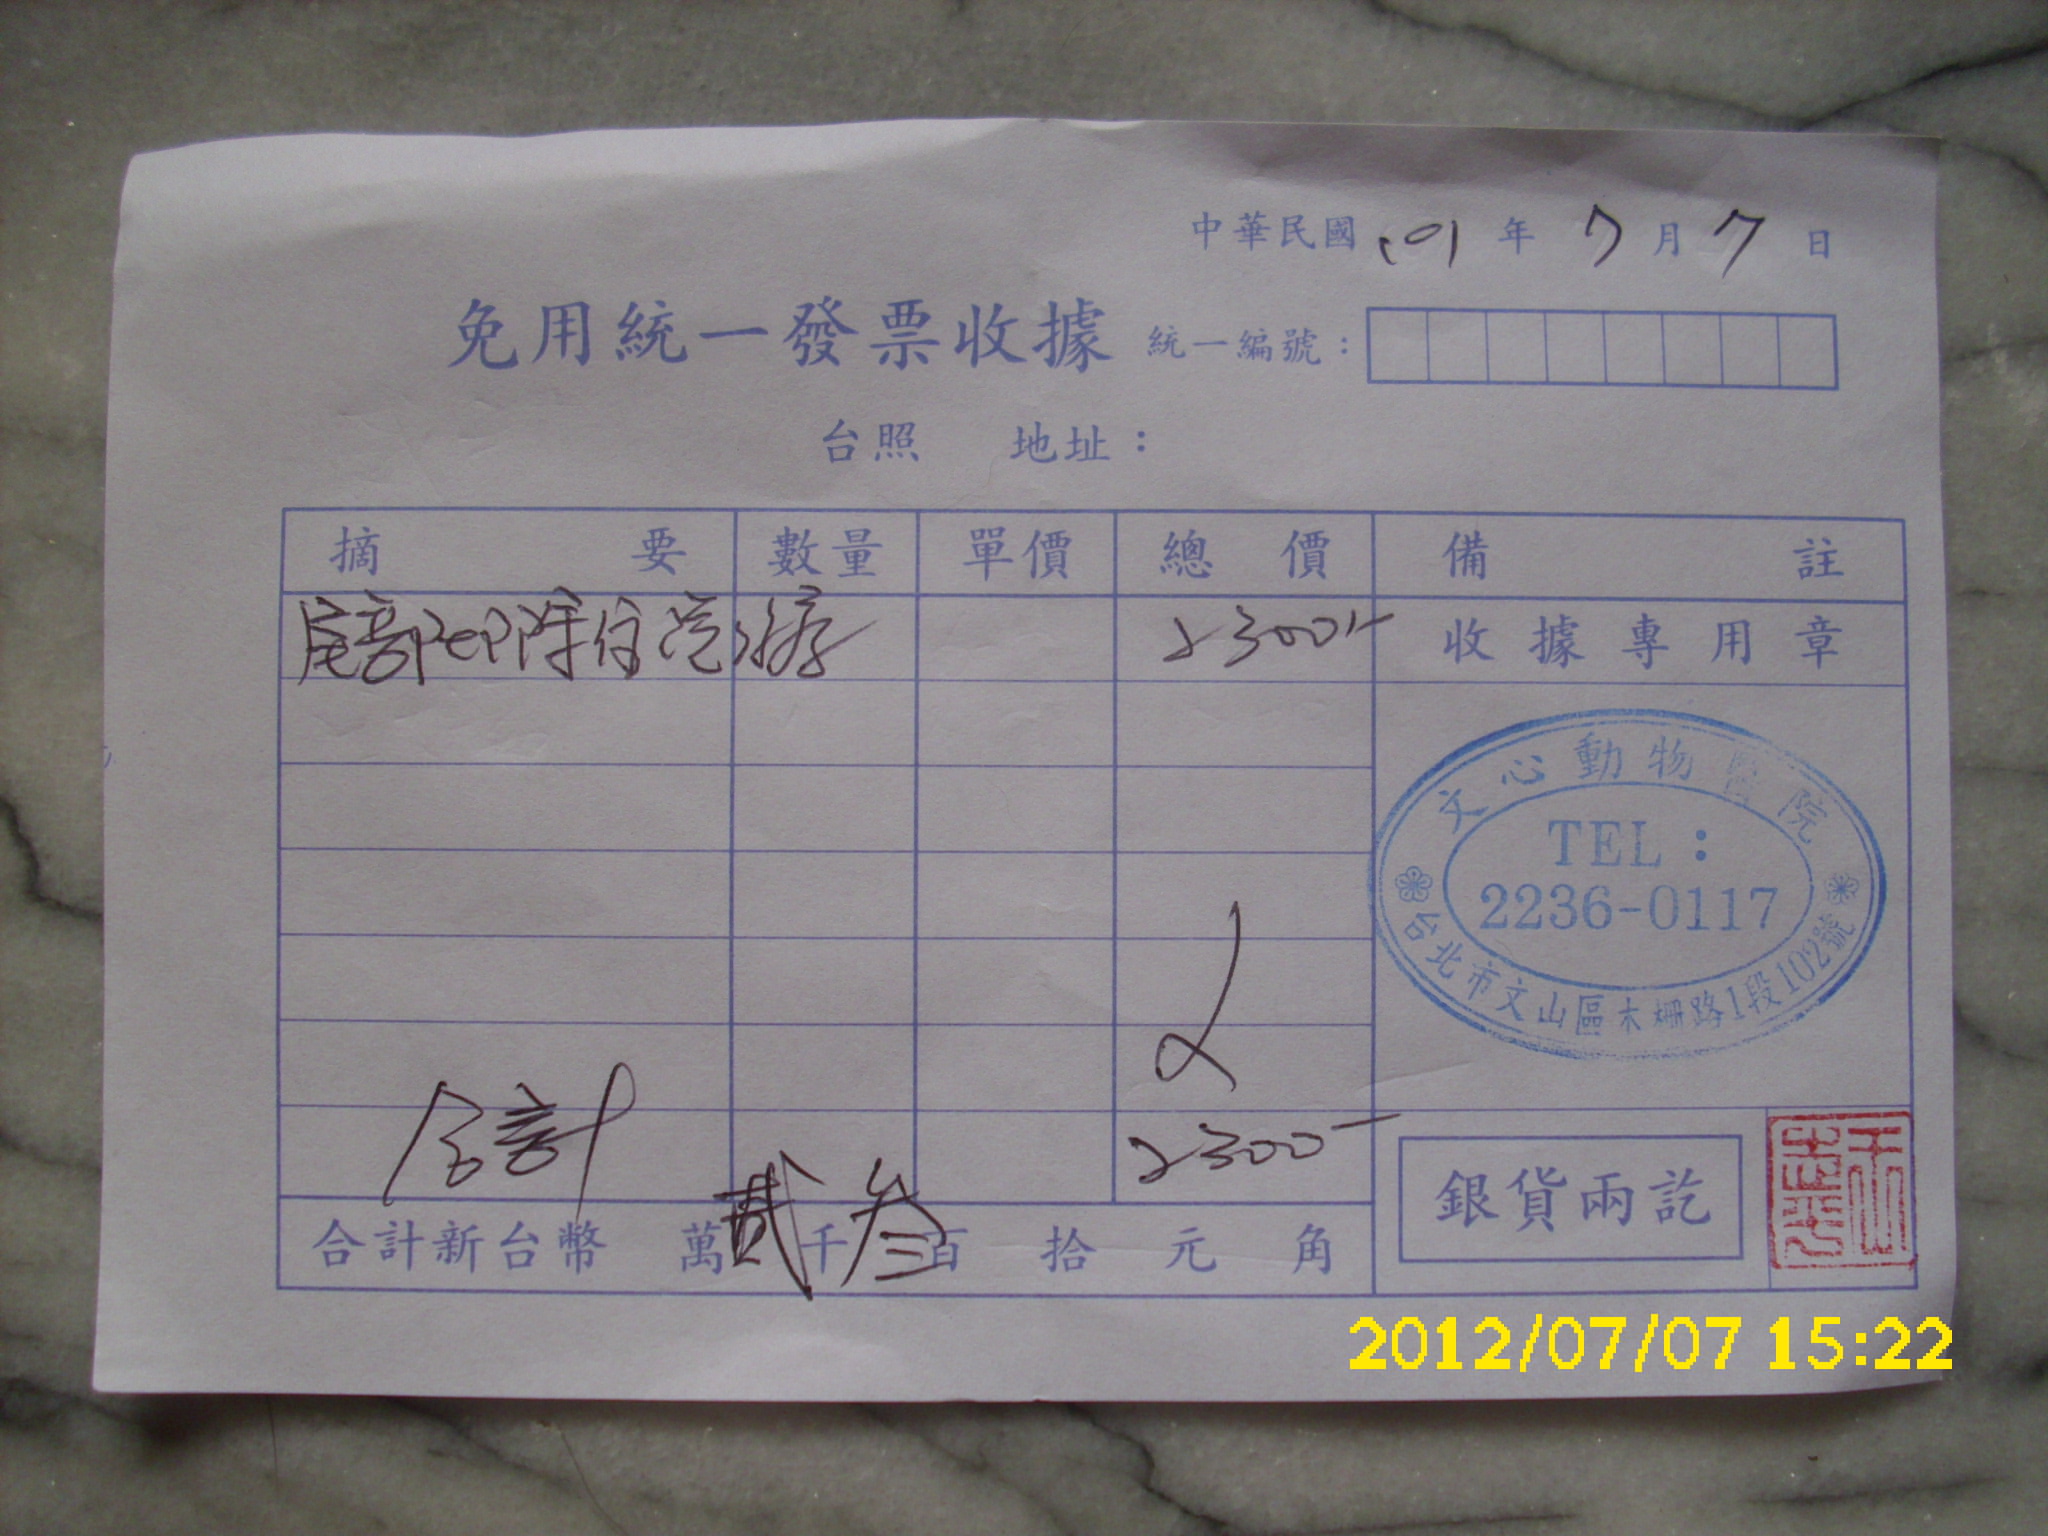 中華民國 101 年 7 月 7 日
免用統一發票收據 統一編號：
台照 地址：
摘要 數量 單價 總價 備註
尾部 住院 2300- 收據專用章
文心動物醫院
TEL：
2236-0117
台北市文山區木柵路1段102號
合計 2300-
合計新台幣 萬貳千叁百拾元角
銀貨兩訖
2012/07/07 15:22